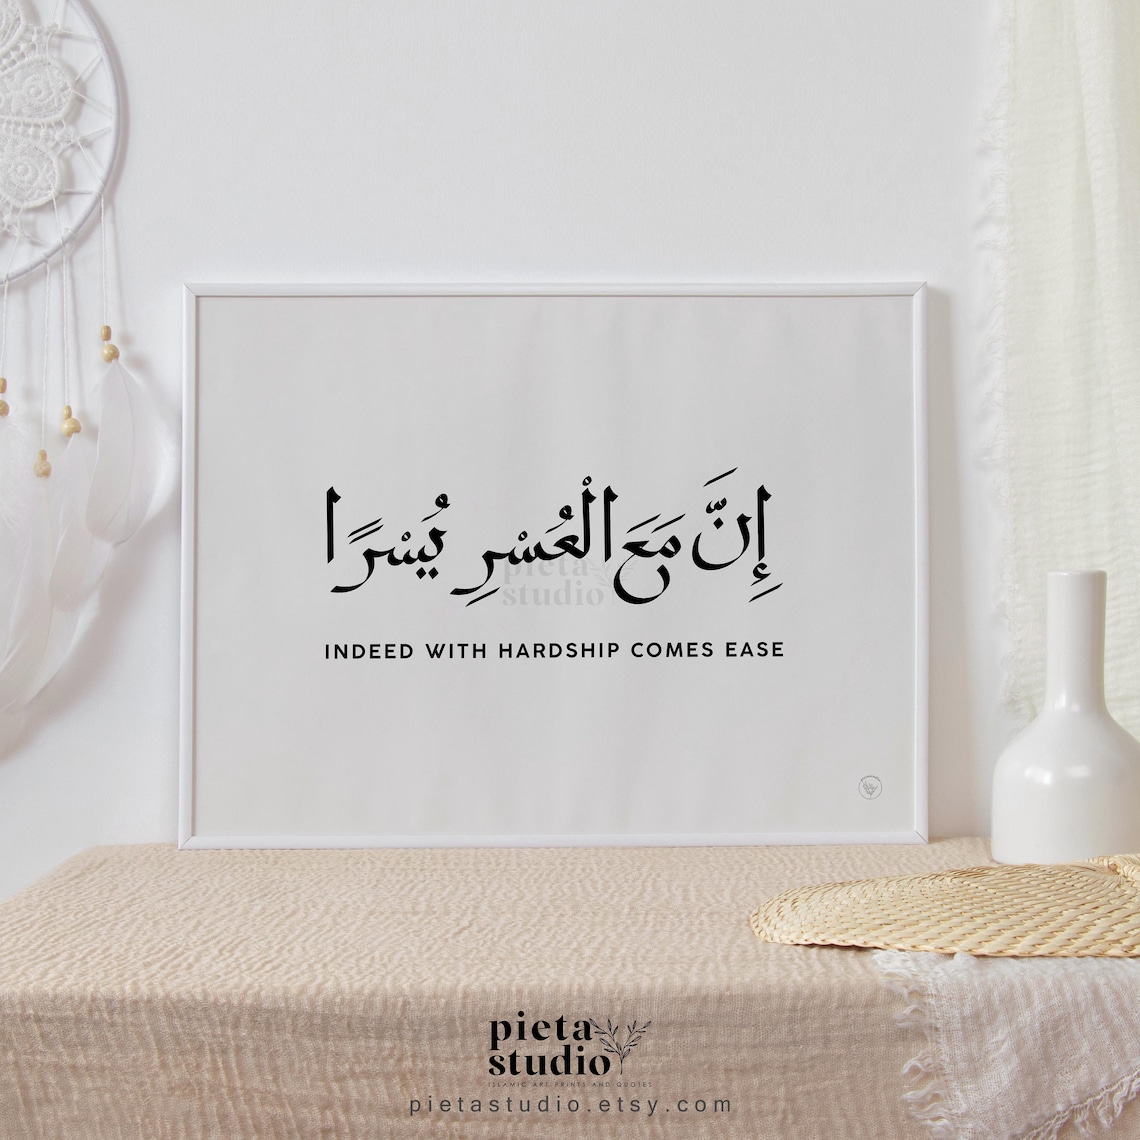 إِنَّ مَعَ الْعُسْرِ يُسْرًا
pieta
studio
INDEED WITH HARDSHIP COMES EASE
pieta
studio
ISLAMIC ART PRINTS AND QUOTES
pietastudio.etsy.com